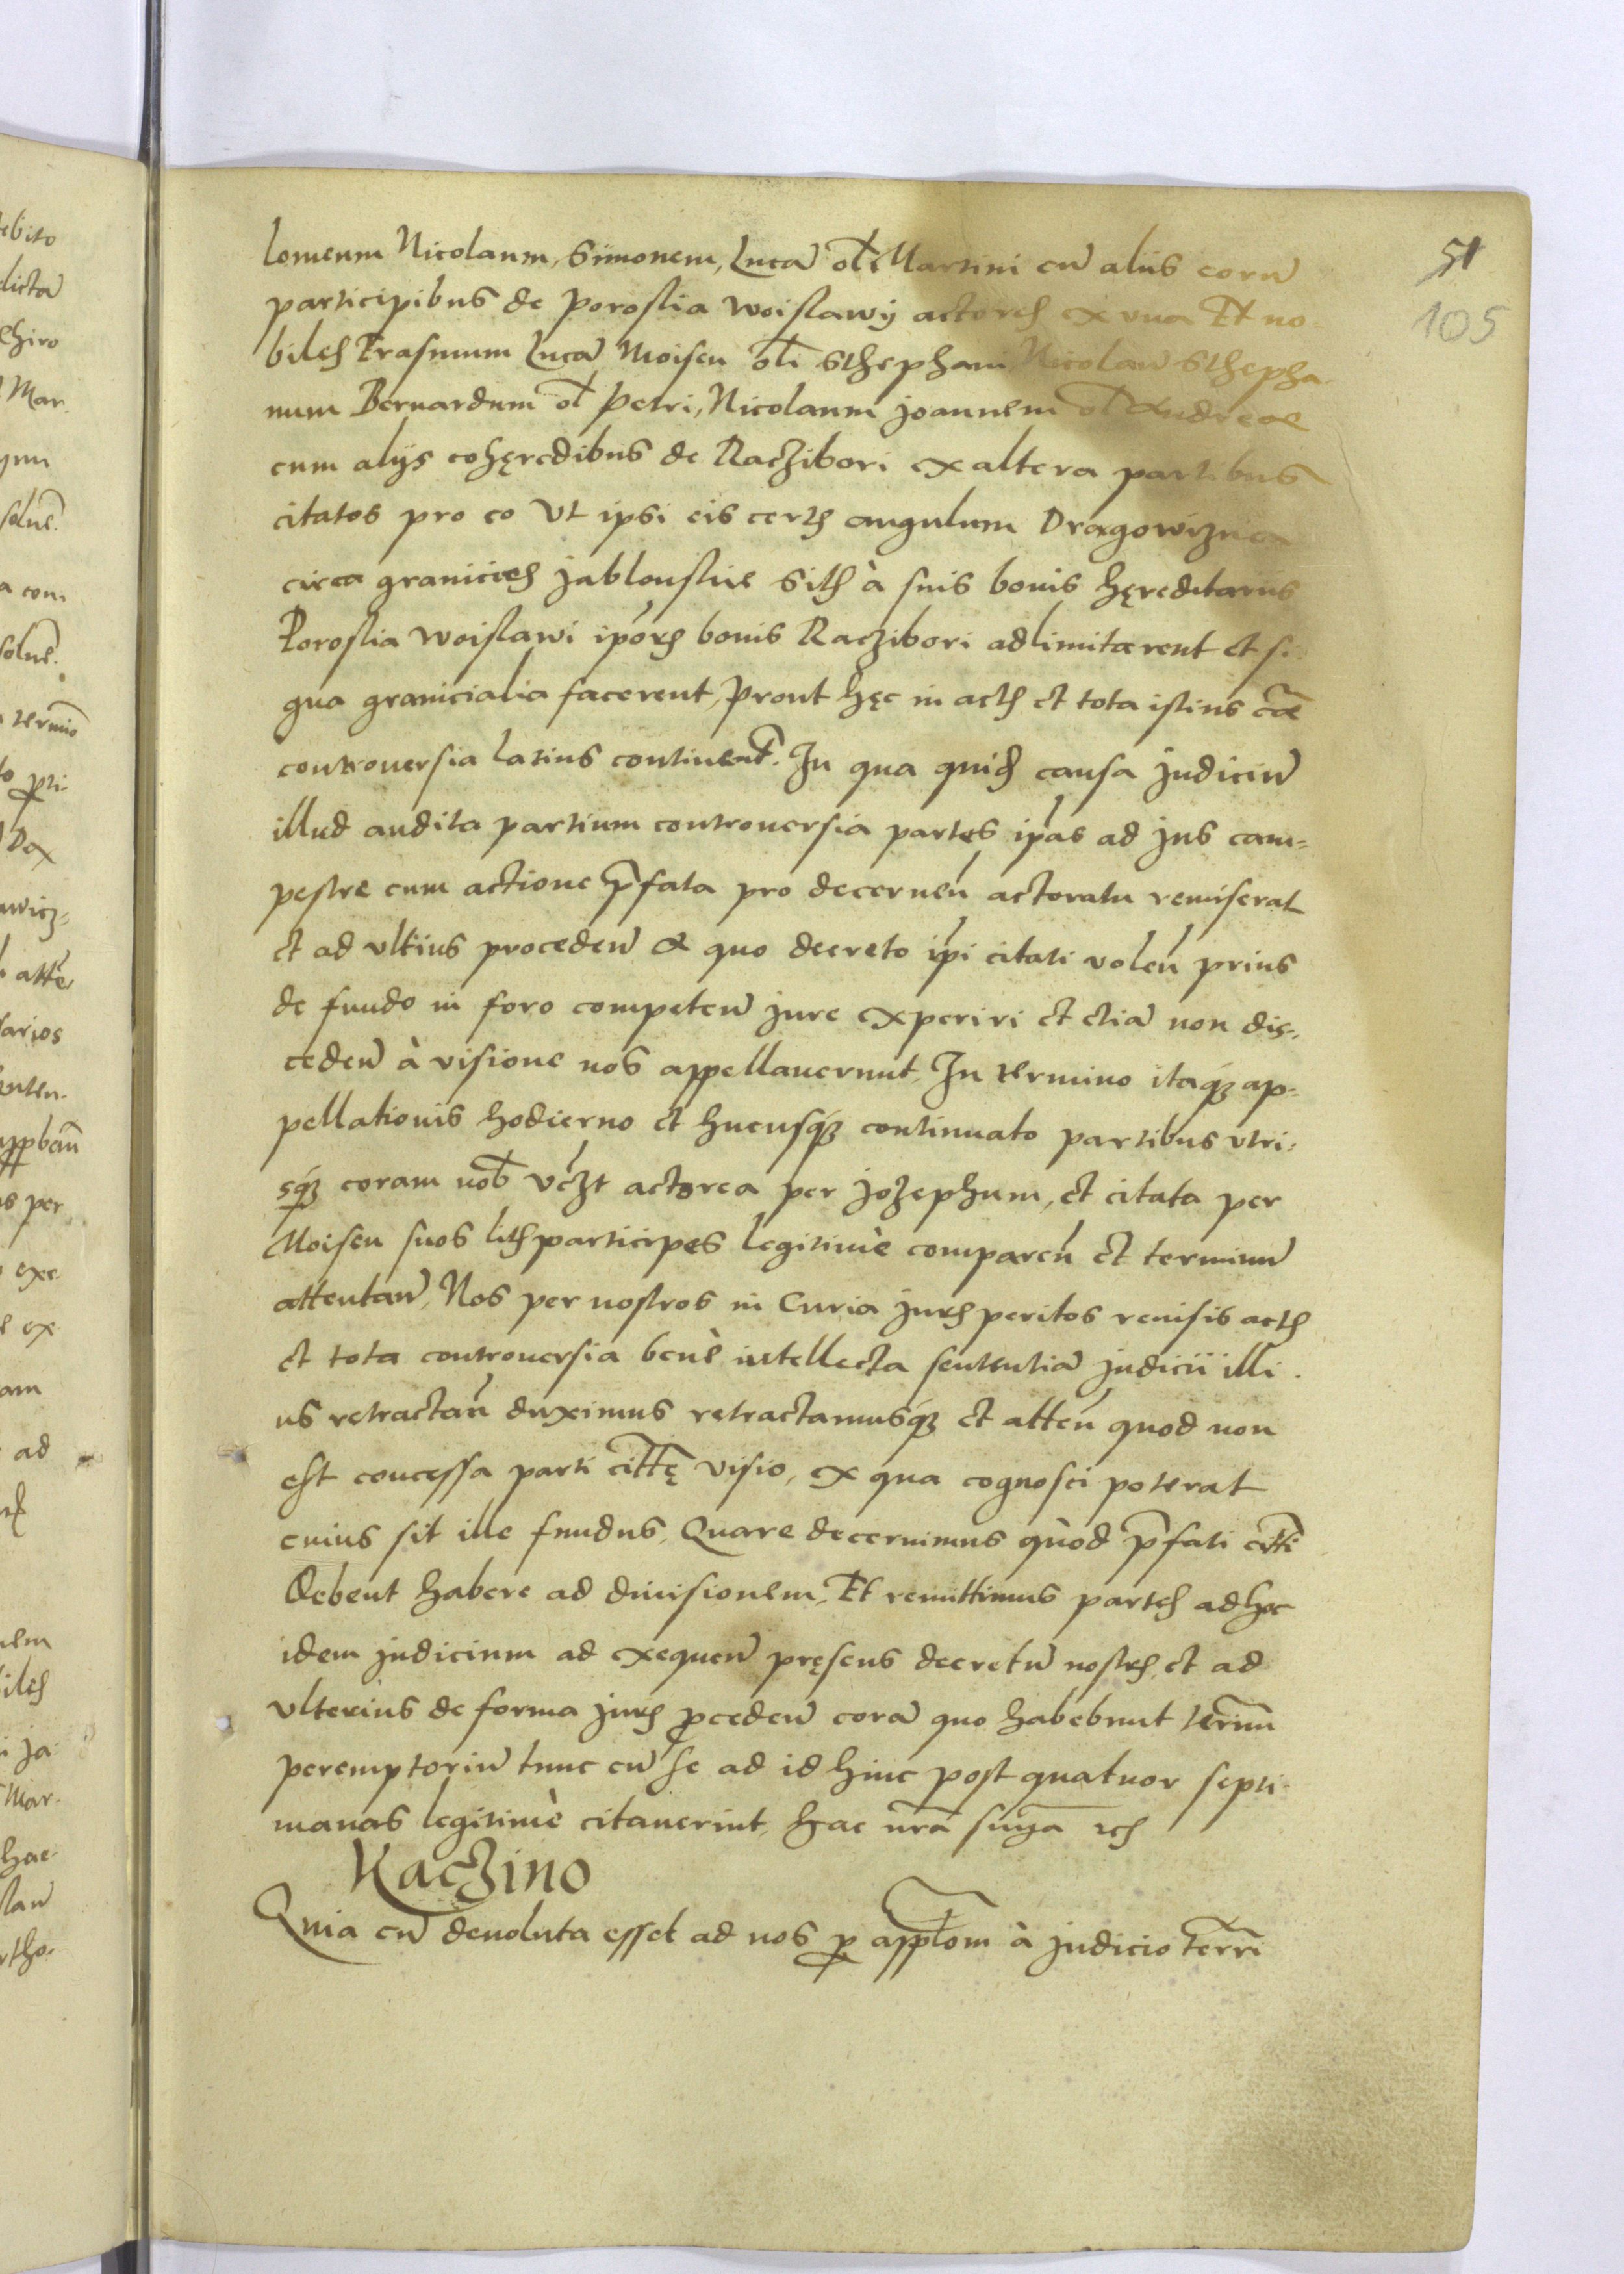 51
105
lomeum Nicolaum, Siimonem, Lucā ol̄ Martini cū aliis eorū
participibus de Poroslia Woislawÿ actores ex una Et no-
biles Erasmum Lucā Moisen oli Sthephani Nicolaū Sthepha-
num Bernardum ol̄ Petri, Nicolaum Joannem ol̄ Andreae
cum alÿs cohęredibus de Raczibori ex altera partibus
citatos pro eo Vt ipsi eis certū angulum Dragowizna
circa granicies Jablonskie Sitū à suis bonis hęreditariis
Poroslia Woislawi ipōrū bonis Raczibori adlimitarent et si-
gna granicialia facerent, Prout hęc in actis et tota istius cāe
controuersia latius continent̄. In qua quidē causa Judiciū
illud audita partium controuersia partes ipās ad Jus cam-
pestre cum actione p̄fata pro decernen̄ actoratu remiserat
et ad vltius procedeñ A quo decreto ip̄i citati volen̄ prius
de fundo in foro competeñ Jure experiri et etiā non dis-
cedeñ à visione nos appellauerunt, In termino itaq́ꝫ ap-
pellationis hodierno et hucusq́ꝫ continuato partibus vtri-
sq́ꝫ coram nob̄ vczt actorea per Jozephum, et citata per
Moisen suos litis participes legitimè comparen̄ et terminū
attentañ, Nos per nostros in Curia Juris peritos reuisis actis
et tota controuersia benè intellecta sententiā Judicii illi-
us retractan̄ duximus retractamusq́ꝫ et atten̄ quod non
est concessa parti cittę visio, ex qua cognosci poterat
cuius sit ille fundus, Quare decernimus quòd p̄fati citti
Debent habere ad diuisionem, Et remittimus partes ad hoc
idem Judicium ad exequeñ pręsens decretū nostrū, et ad
vlterius de forma Juris ꝓcedeñ corā quo habebunt termīn
peremptoriū tunc cū se ad id hinc post quatuor septi-
manas legitimè citauerint, hac nr̄a sn̄ia etc
Kaczino
Quia cū deuoluta esset ad nos ꝑ app̄lōm à Judicio terrī